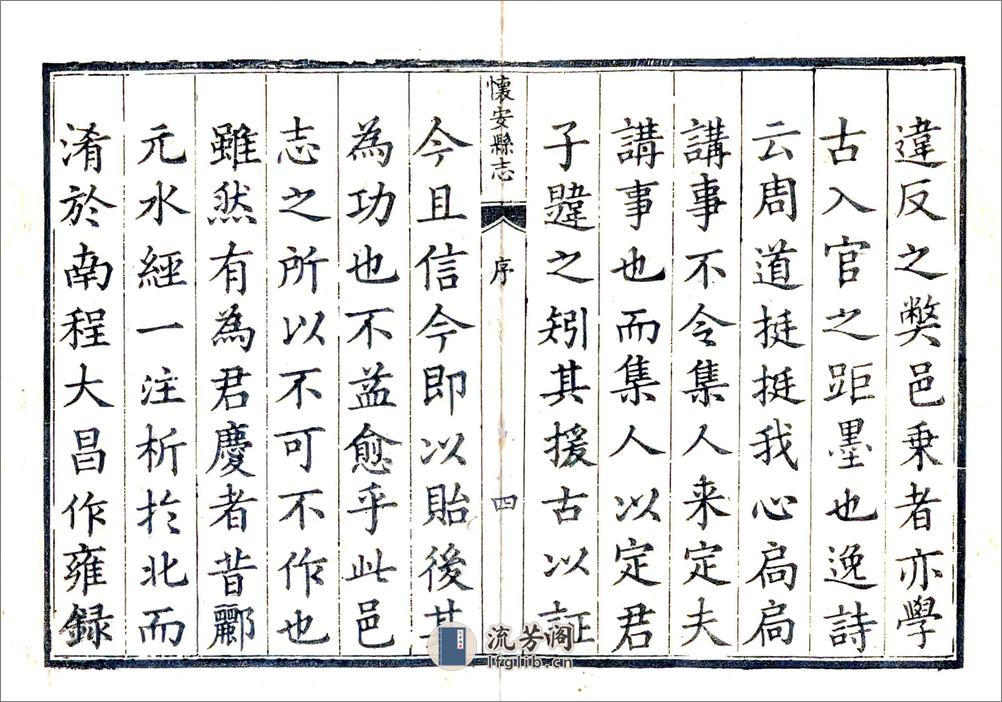 違反之獘邑乗者亦學
古入官之距墨也逸詩
云周道挺挺我心扃扃
講事不令集人来定夫
講事也而集人以定君
子韙之矧其援古以証
懷安縣志 序 四
今且信今即以貽後其
為功也不益愈乎此邑
志之所以不可不作也
雖然有為君慶者昔酈
元水經一注析於北而
淆於南程大昌作雍録
流芳阁
lfglib.cn